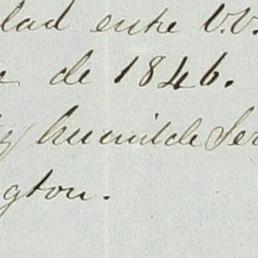 dad entre V.V.
de 1846.
y humilde Ser
gton.